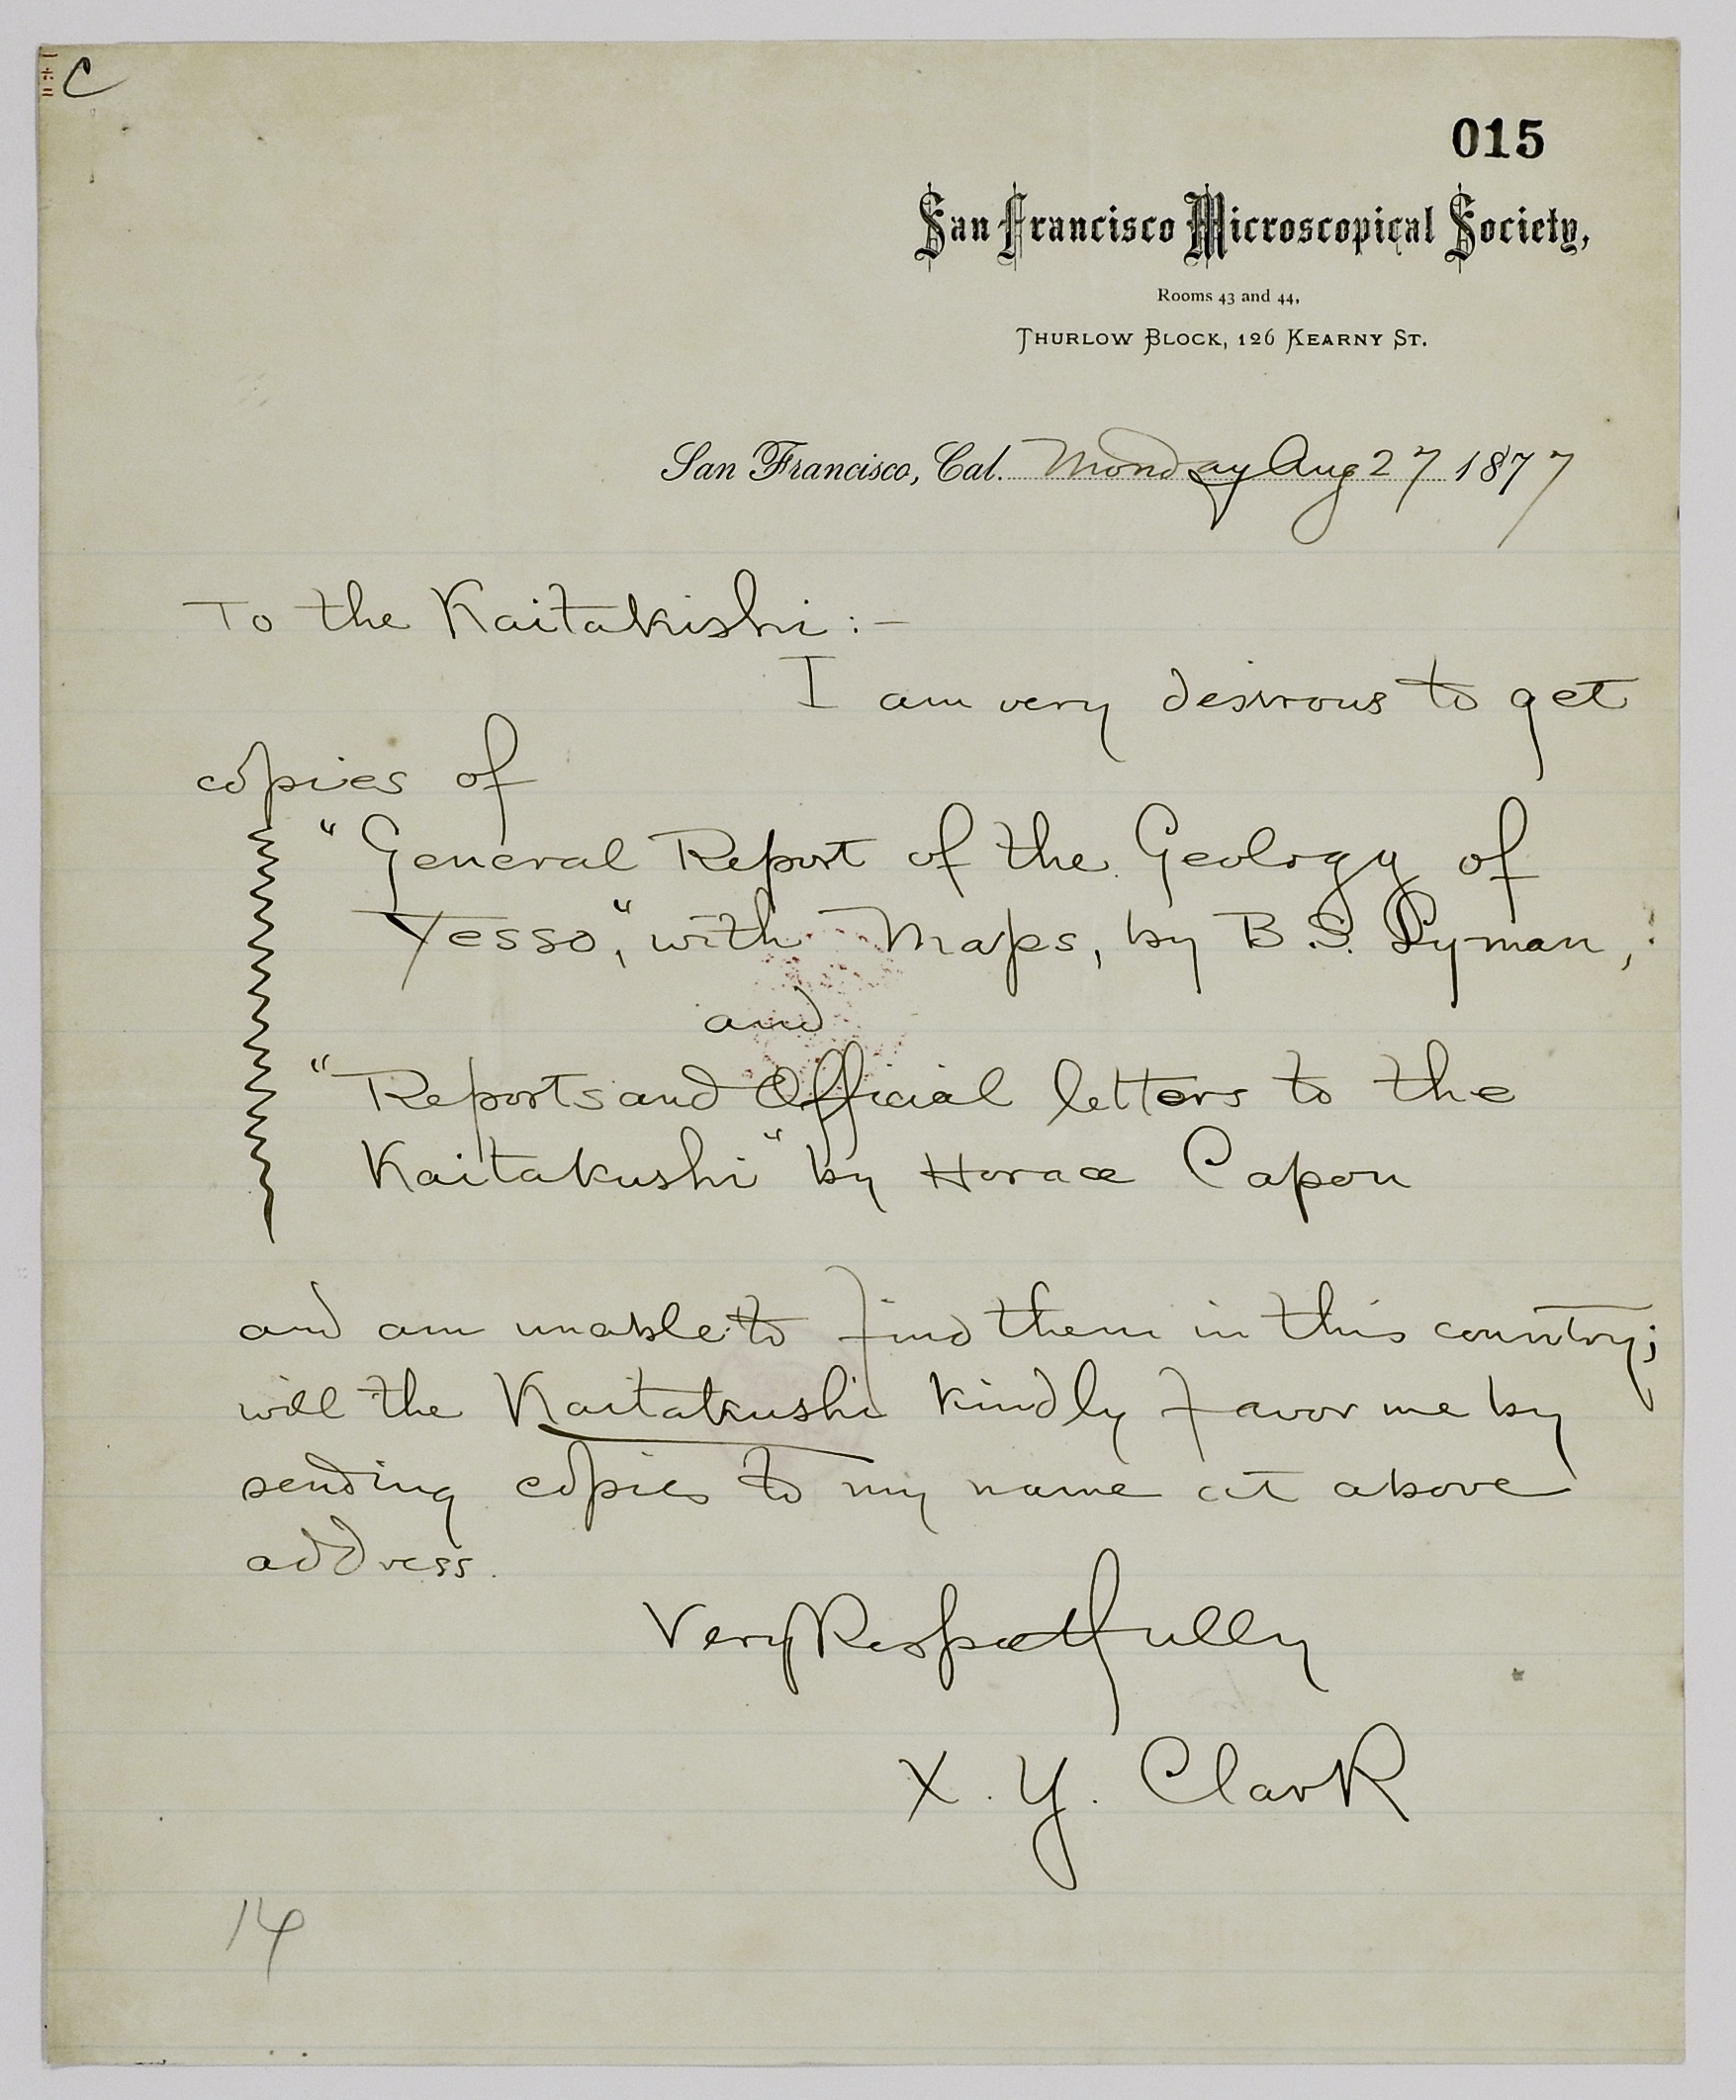 C
015
San Francisco Microscopical Society,
Rooms 43 and 44,
Thurlow Block, 126 Kearny St.
San Francisco, Cal. Monday Aug 27 1877
To the Kaitakishi :-
I am very desirous to get
copies of
"General Report of the Geology of
Yesso," with Maps, by B.S. Lyman,
and
"Reports and Official letters to the
Kaitakushi" by Horace Capon
and am unable to find them in this country;
will the Kaitakushi kindly favor me by
sending copies to my name at above
address.
Very Respectfully
X. Y. Clark
14